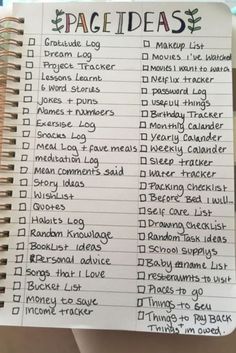 PAGE IDEAS
Gratitude Log
Dream Log
Project Tracker
Lessons Learnt
6 Word stories
Jokes + puns
Names + numbers
Exercise Log
Snacks Log
Meal Log + fave meals
meditation Log
Mean comments said
Story Ideas
WishList
Quotes
Habits Log
Random Knowlage
BookList ideas
Personal advice
Songs that I Love
Bucket List
Money to save
income tracker
Makeup List
Movies I've Watched
Movies I want to watch
Netflix tracker
password Log
usefull things
Birthday Tracker
Monthly Calander
Yearly Calander
Weekly Calander
Sleep tracker
Water tracker
Packing Checklist
Before Bed I will...
Self care List
Drawing Checklist
Random Task ideas
School supplys
Baby name List
restaraunts to visit
Places to go
Things to sell
Things to Pay Back
Things im owed.